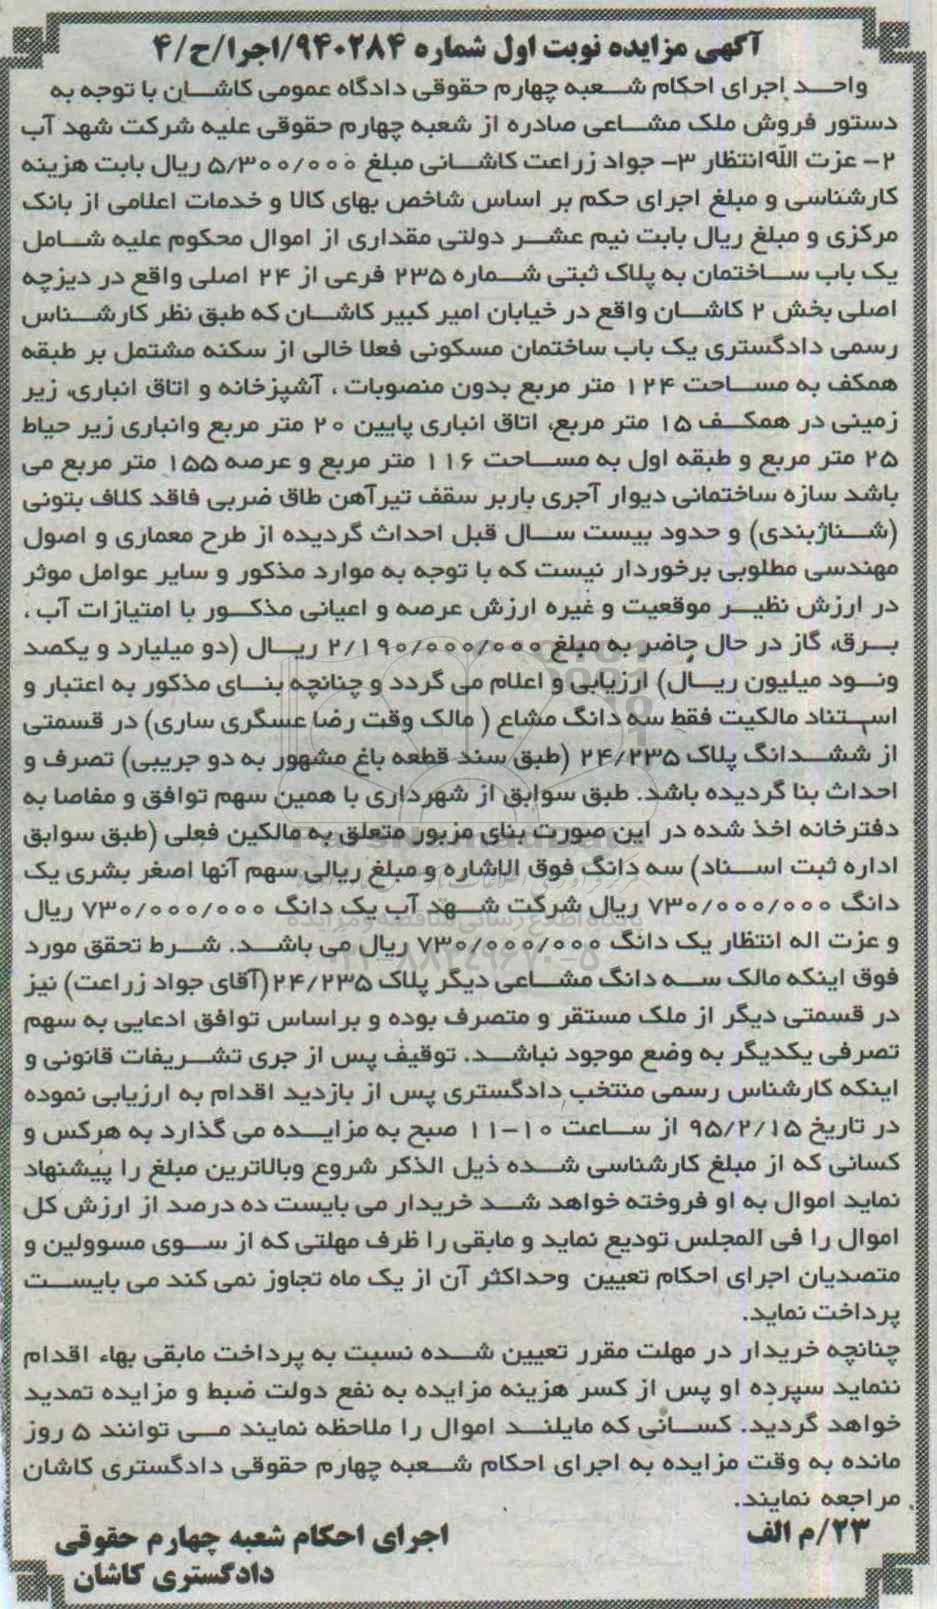 آگهی مزایده نوبت اول شماره ۹۴۰۲۸۴/اجرا/ح/۴
واحد اجرای احکام شعبه چهارم حقوقی دادگاه عمومی کاشان با توجه به
دستور فروش ملک مشاعی صادره از شعبه چهارم حقوقی علیه شرکت شهد آب
۲- عزت الله انتظار ۳- جواد زراعت کاشانی مبلغ ۵/۳۰۰/۰۰۰ ریال بابت هزینه
کارشناسی و مبلغ اجرای حکم بر اساس شاخص بهای کالا و خدمات اعلامی از بانک
مرکزی و مبلغ ریال بابت نیم عشر دولتی مقداری از اموال محکوم علیه شامل
یک باب ساختمان به پلاک ثبتی شماره ۲۳۵ فرعی از ۲۴ اصلی واقع در دیزچه
اصلی بخش ۲ کاشان واقع در خیابان امیر کبیر کاشان که طبق نظر کارشناس
رسمی دادگستری یک باب ساختمان مسکونی فعلا خالی از سکنه مشتمل بر طبقه
همکف به مساحت ۱۲۴ متر مربع بدون منصوبات ، آشپزخانه و اتاق انباری، زیر
زمینی در همکف ۱۵ متر مربع، اتاق انباری پایین ۲۰ متر مربع وانباری زیر حیاط
۲۵ متر مربع و طبقه اول به مساحت ۱۱۶ متر مربع و عرصه ۱۵۵ متر مربع می
باشد سازه ساختمانی دیوار آجری باربر سقف تیرآهن طاق ضربی فاقد کلاف بتونی
(شناژبندی) و حدود بیست سال قبل احداث گردیده از طرح معماری و اصول
مهندسی مطلوبی برخوردار نیست که با توجه به موارد مذکور و سایر عوامل موثر
در ارزش نظیر موقعیت و غیره ارزش عرصه و اعیانی مذکور با امتیازات آب ،
برق، گاز در حال حاضر به مبلغ ۲/۱۹۰/۰۰۰/۰۰۰ ریال (دو میلیارد و یکصد
ونود میلیون ریال) ارزیابی و اعلام می گردد و چنانچه بنای مذکور به اعتبار و
استناد مالکیت فقط سه دانگ مشاع ( مالک وقت رضا عسگری ساری) در قسمتی
از ششدانگ پلاک ۲۴/۲۳۵ (طبق سند قطعه باغ مشهور به دو جریبی) تصرف و
احداث بنا گردیده باشد. طبق سوابق از شهرداری با همین سهم توافق و مفاصا به
دفترخانه اخذ شده در این صورت بنای مزبور متعلق به مالکین فعلی (طبق سوابق
اداره ثبت اسناد) سه دانگ فوق الاشاره و مبلغ ریالی سهم آنها اصغر بشری یک
دانگ ۷۳۰/۰۰۰/۰۰۰ ریال شرکت شهد آب یک دانگ ۷۳۰/۰۰۰/۰۰۰ ریال
و عزت اله انتظار یک دانگ ۷۳۰/۰۰۰/۰۰۰ ریال می باشد. شرط تحقق مورد
فوق اینکه مالک سه دانگ مشاعی دیگر پلاک ۲۴/۲۳۵ (آقای جواد زراعت) نیز
در قسمتی دیگر از ملک مستقر و متصرف بوده و براساس توافق ادعایی به سهم
تصرفی یکدیگر به وضع موجود نباشد. توقیف پس از جری تشریفات قانونی و
اینکه کارشناس رسمی منتخب دادگستری پس از بازدید اقدام به ارزیابی نموده
در تاریخ ۹۵/۲/۱۵ از ساعت ۱۰-۱۱ صبح به مزایده می گذارد به هرکس و
کسانی که از مبلغ کارشناسی شده ذیل الذکر شروع وبالاترین مبلغ را پیشنهاد
نماید اموال به او فروخته خواهد شد خریدار می بایست ده درصد از ارزش کل
اموال را فی المجلس تودیع نماید و مابقی را ظرف مهلتی که از سوی مسوولین و
متصدیان اجرای احکام تعیین وحداکثر آن از یک ماه تجاوز نمی کند می بایست
پرداخت نماید.
چنانچه خریدار در مهلت مقرر تعیین شده نسبت به پرداخت مابقی بهاء اقدام
ننماید سپرده او پس از کسر هزینه مزایده به نفع دولت ضبط و مزایده تمدید
خواهد گردید. کسانی که مایلند اموال را ملاحظه نمایند می توانند ۵ روز
مانده به وقت مزایده به اجرای احکام شعبه چهارم حقوقی دادگستری کاشان
مراجعه نمایند.
۲۳/م الف
اجرای احکام شعبه چهارم حقوقی
دادگستری کاشان